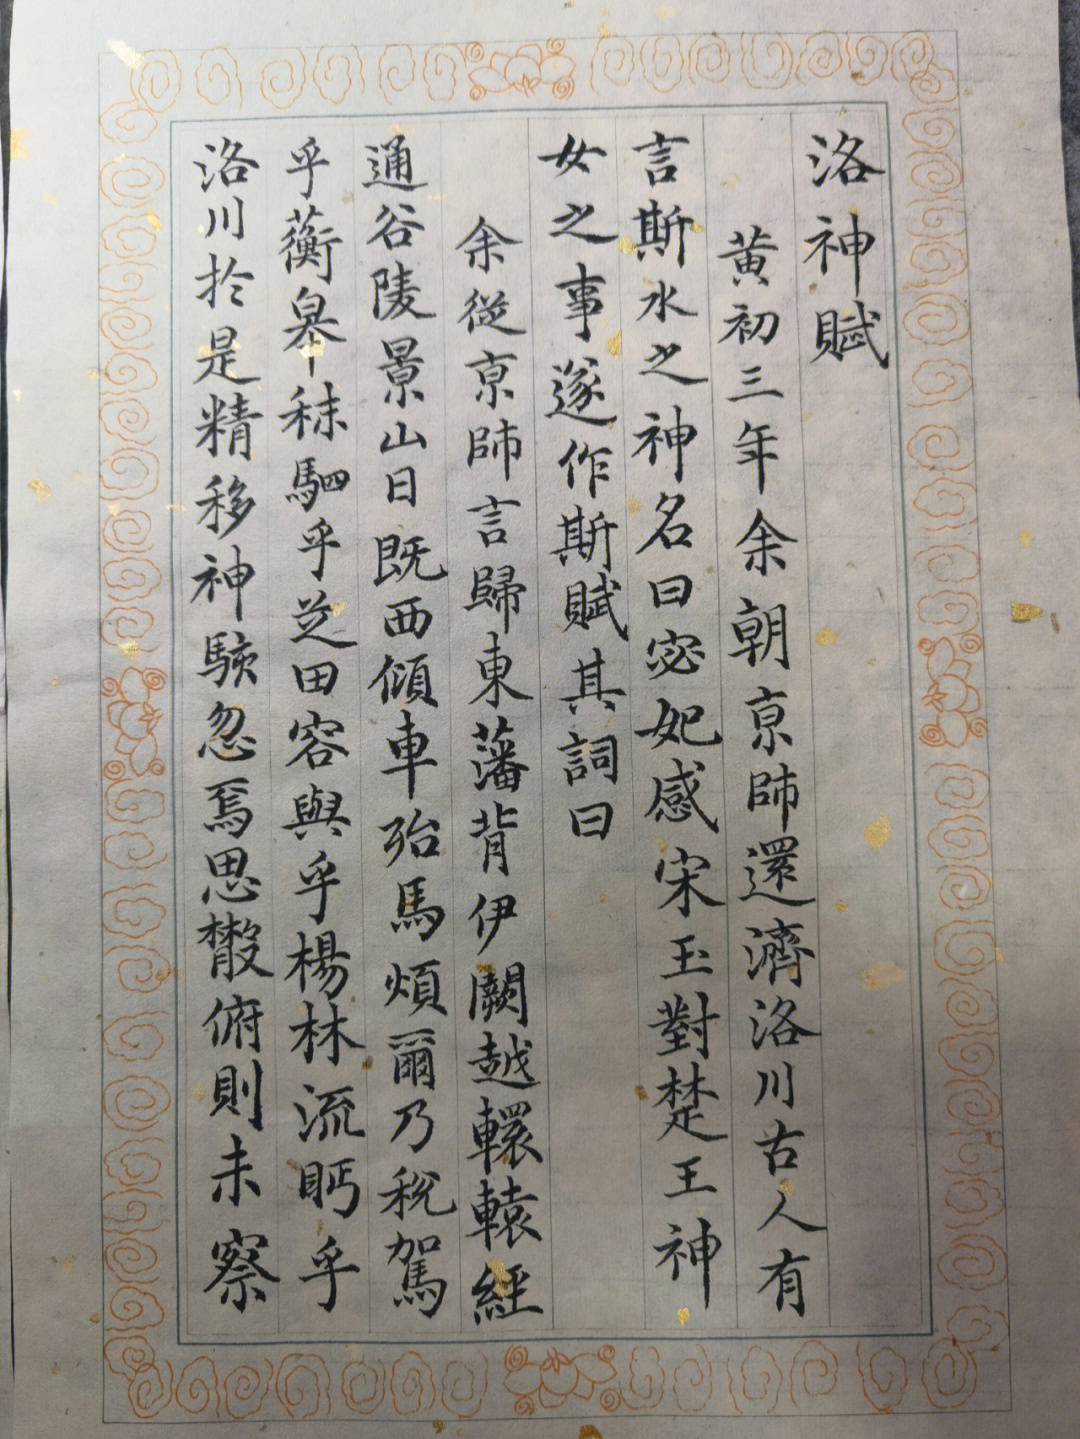 洛神賦
黄初三年余朝京師還濟洛川古人有
言斯水之神名曰宓妃感宋玉對楚王神
女之事遂作斯賦其詞曰
余從京師言歸東藩背伊闕越轘轅經
通谷陵景山日既西傾車殆馬煩爾乃税駕
乎蘅皋秣駟乎芝田容與乎楊林流眄乎
洛川於是精移神駭忽焉思散俯則未察